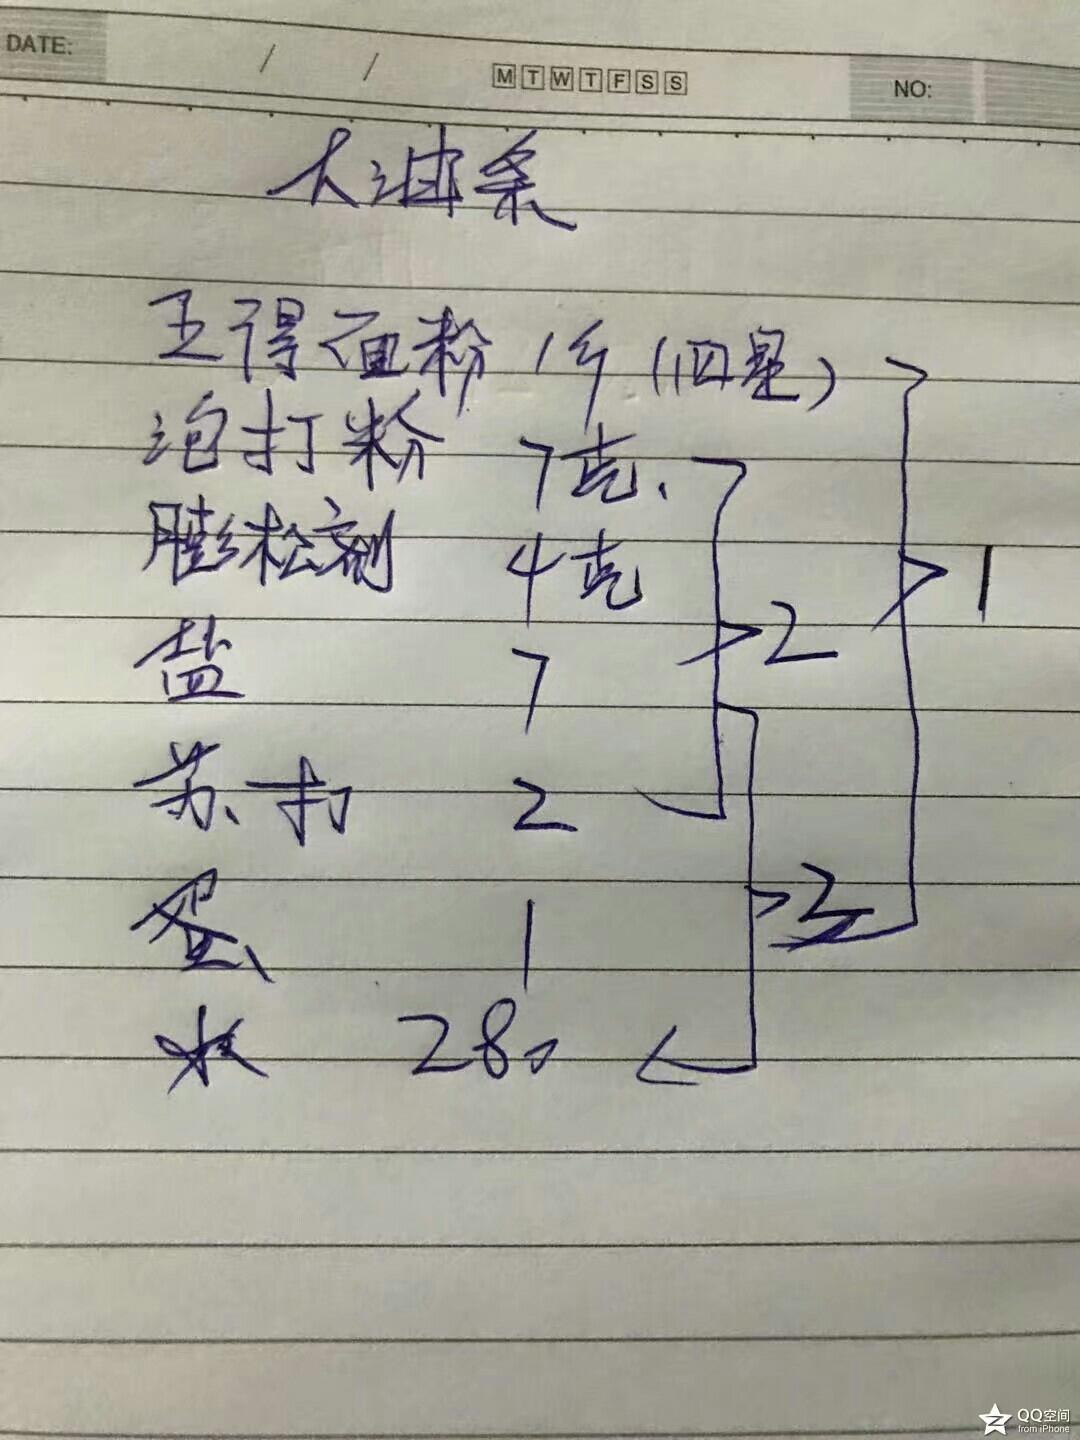 DATE: / / M T W T F S S NO:
大油条
五得面粉 1斤 (四星)
泡打粉 7克、
膨松剂 4克
盐 7
苏打 2
蛋 1
水 280
1
2
3
QQ空间
from iPhone